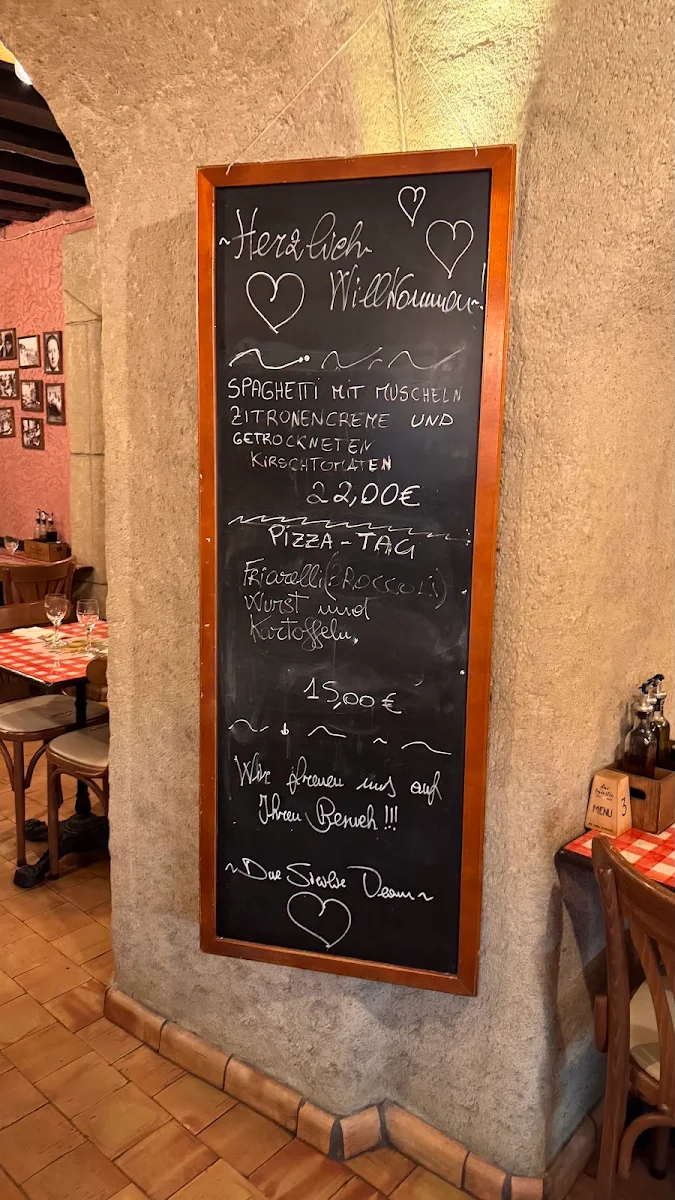 ~Herzlich
Willkommen~!
SPAGHETTI MIT MUSCHELN
ZITRONENCREME UND
GETROCKNETEN
KIRSCHTOMATEN
22,00€
PIZZA-TAG
Friarelli(BROCCOLI)
Wurst und
Kartoffeln.
15,00€
Wir freuen uns auf
Ihren Besuch!!!
Team~
MENU
3